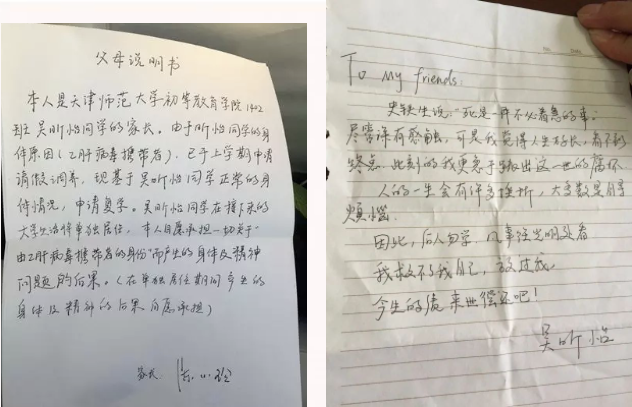 父母说明书
本人是天津师范大学初等教育学院1402
班吴昕怡同学的家长。由于昕怡同学的身
体原因(乙肝病毒携带者),已于上学期申请
请假调养,现基于吴昕怡同学正常的身
体情况,申请复学。吴昕怡同学在接下来的
大学生活停单独居住,本人自愿承担一切关于
"由乙肝病毒携带者的身份"而产生的身体及精神
问题的后果。(在单独居住期间产生的
身体及精神的后果自愿承担)
家长
To my friends:
史铁生说:"死是一件不必着急的事。
尽管深有感触,可是我觉得人生好长,看不到
终点。此刻的我更急于
人的一生会有许多挫折,大多数是自寻
烦恼。
因此,后人勿学,凡事往光明处看
我救不了我自己,放过我。
今生的债来世偿还吧!
吴昕怡